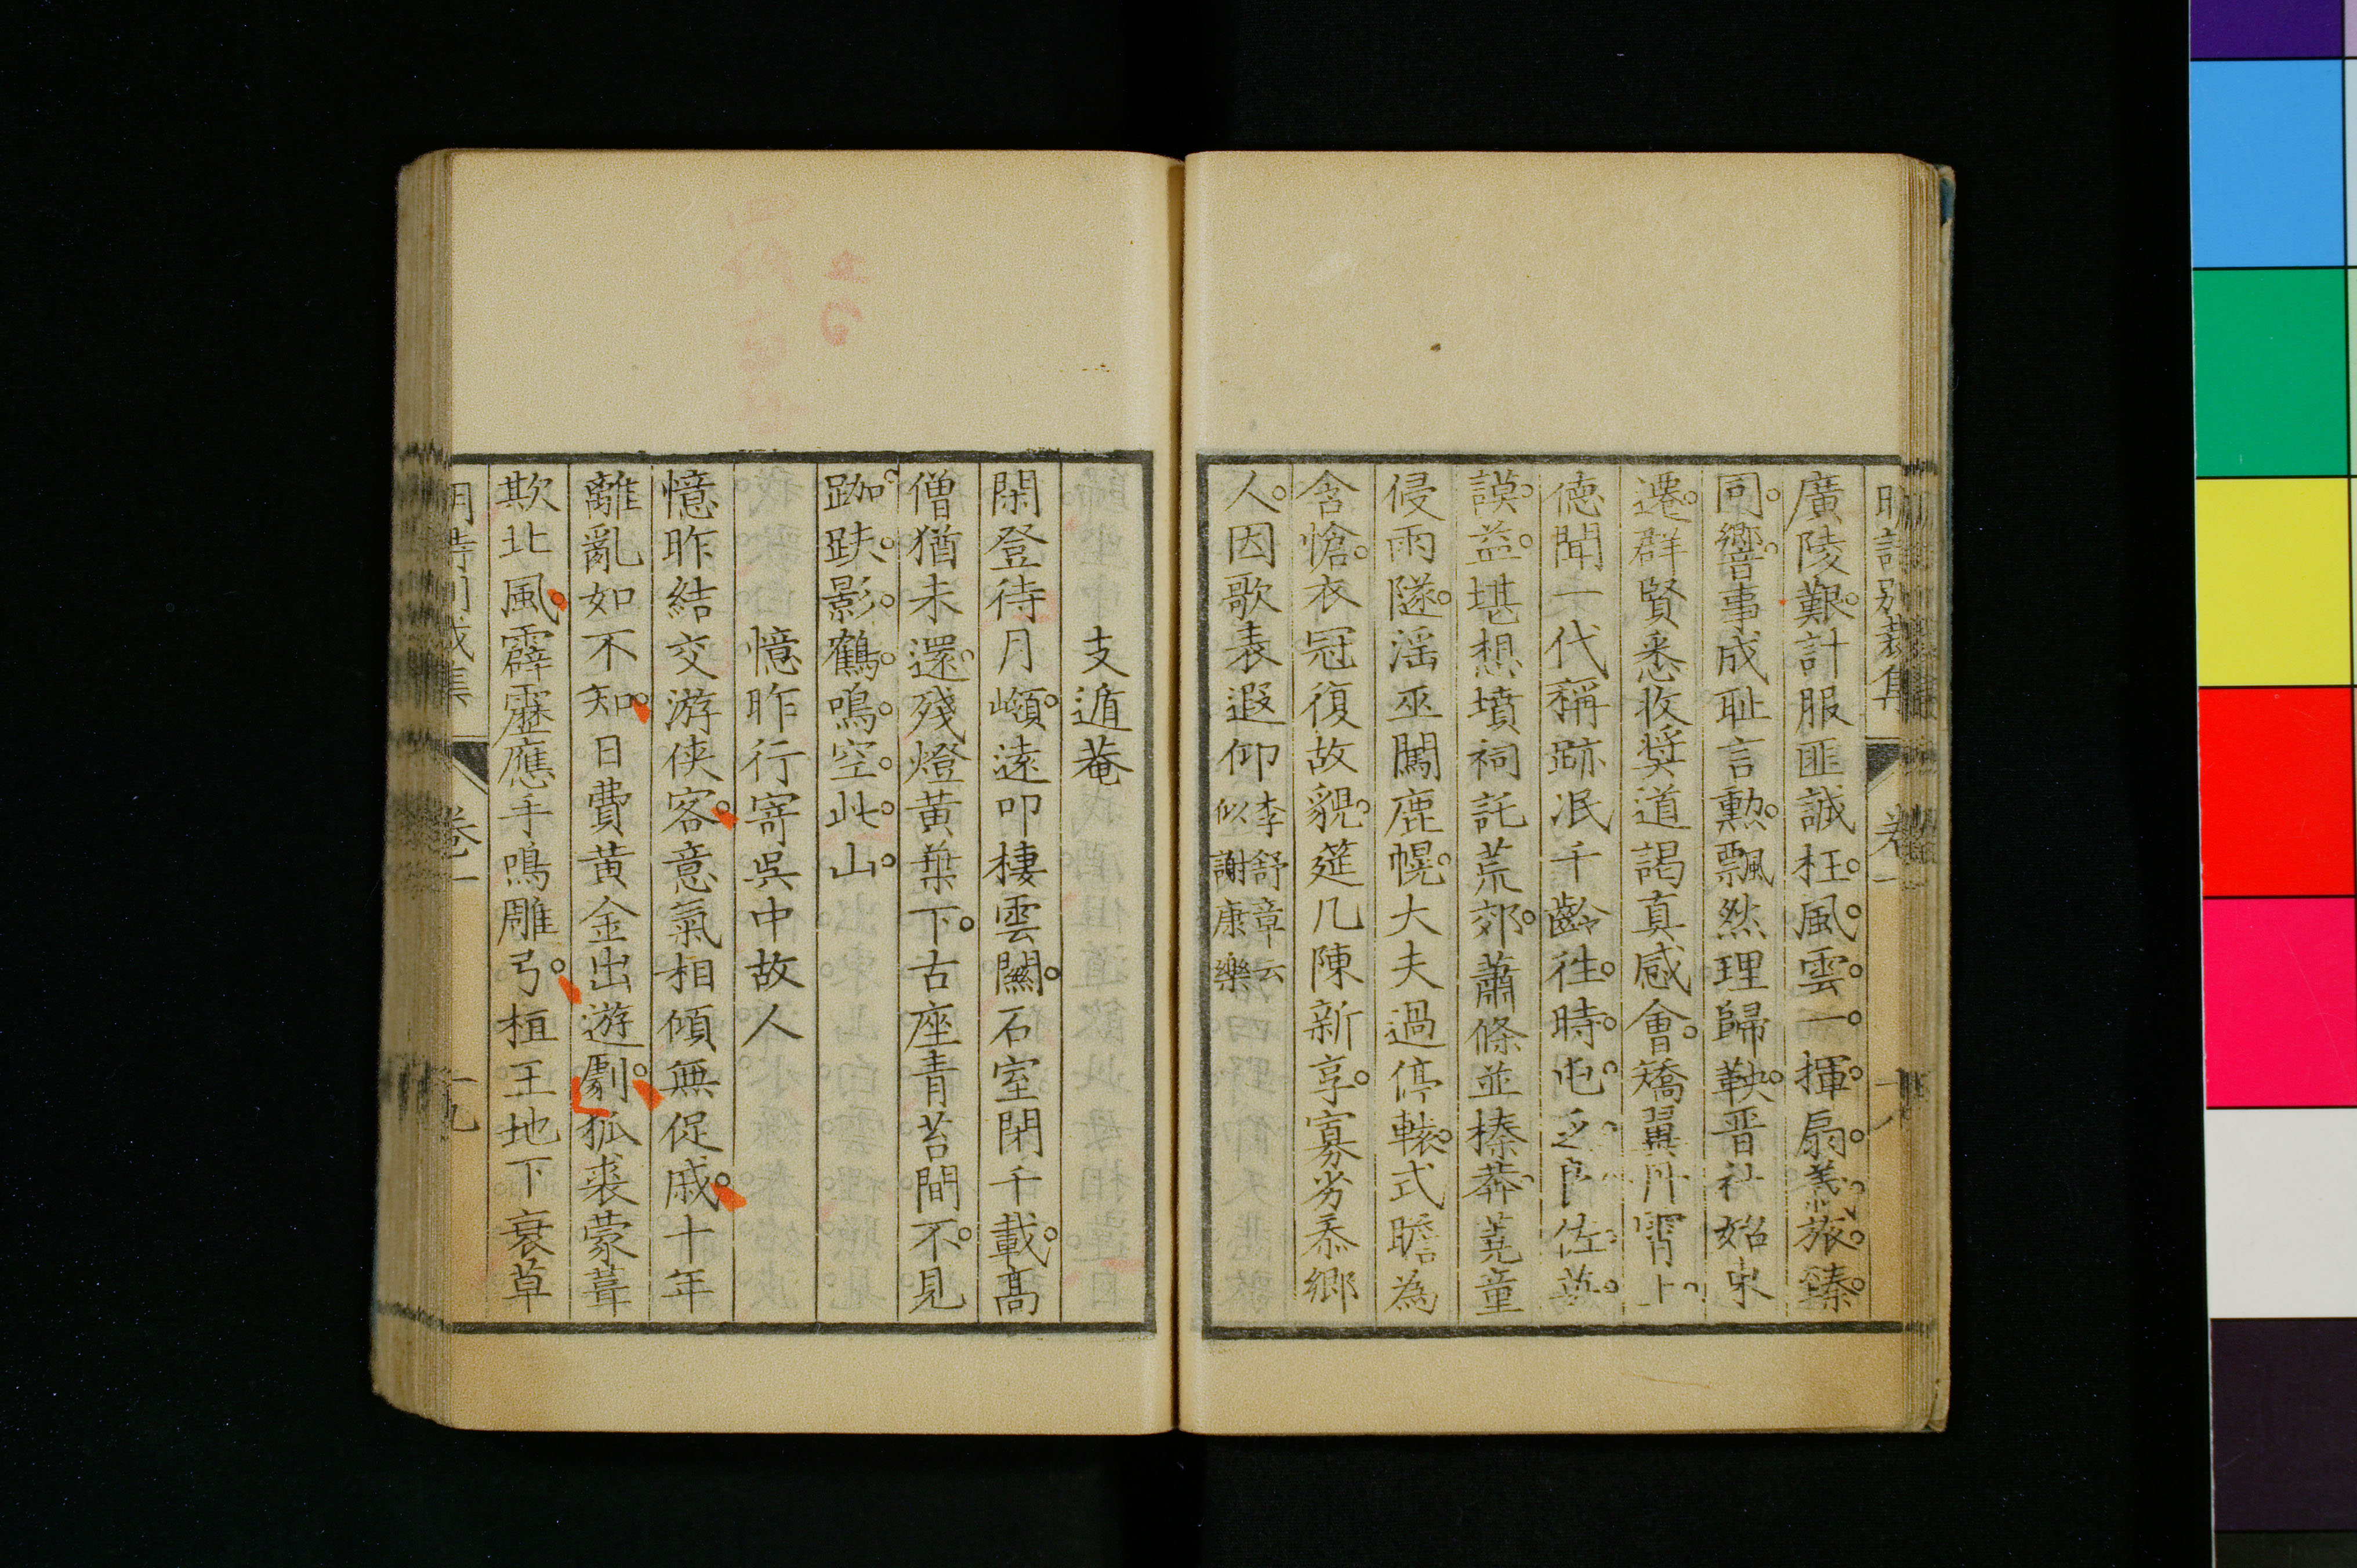 廣陵艱計服匪誠枉風雲一揮扇義旅臻
同響事成耻言勲飄然理歸鞅晋社始宋
遷群賢悉收奨道謁真感會矯翼丹霄上
德聞一代稱跡泯千齡徃時屯乏良佐
謨益堪想墳祠託荒郊蕭條並榛莽蕘童
侵雨隧滛巫闖鹿幌大夫過停轅式瞻為
含愴衣冠復故貌筵几陳新享寡劣忝鄉
人因歌表遐仰
李舒章云
似謝康樂
支遁菴
閑登待月嶺遠叩棲雲關石室閉千載高
僧猶未還殘燈黃葉下古座青苔間不見
跏趺影鶴鳴空此山
憶昨行寄吳中故人
憶昨結交游侠客意氣相傾無促戚十年
離亂如不知日費黃金出遊劇狐裘蒙葺
欺北風霹靂應手鳴雕弓桓王地下衰草
卷一